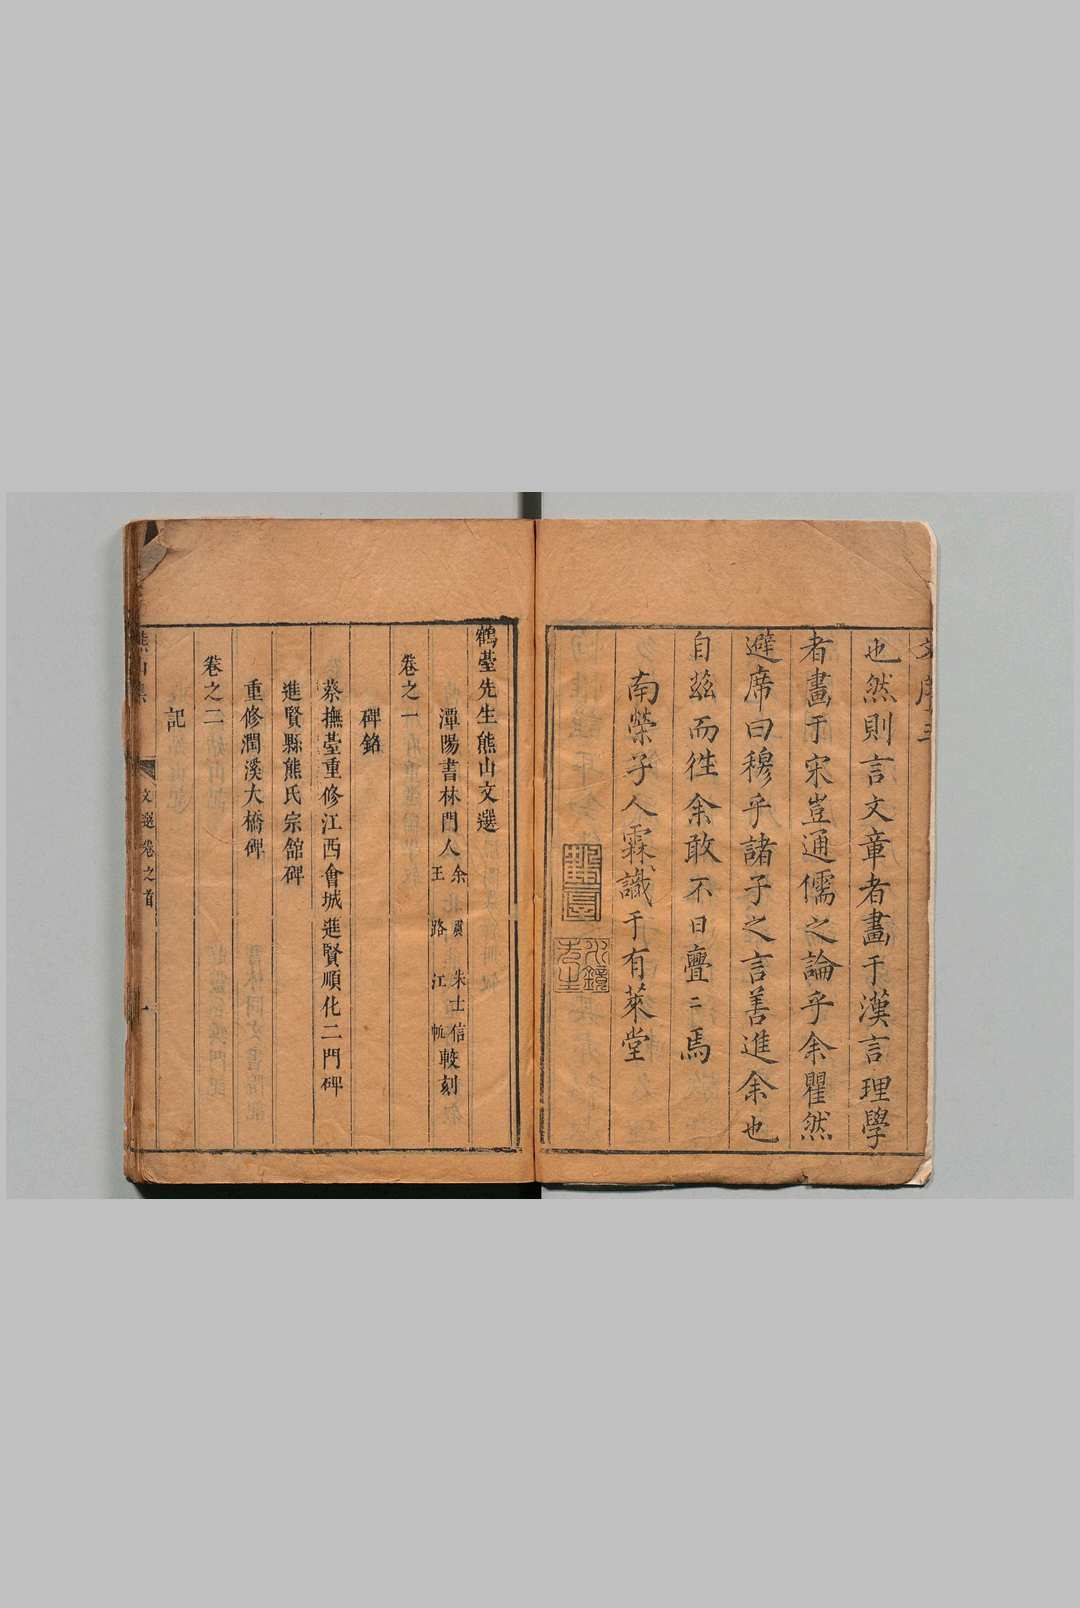 也然則言文章者畫于漢言理學
者畫于宋豈通儒之論乎余瞿然
避席曰穆乎諸子之言善進余也
自玆而徃余敢不日亹〻焉
南榮子人霖識于有萊堂
鶴臺先生熊山文選
潭陽書林門人余 朱士信 王路 江帆 較刻
卷之一
碑銘
蔡撫臺重修江西會城進賢順化二門碑
進賢縣熊氏宗舘碑
重修潤溪大橋碑
卷之二
記
文選卷之首
一